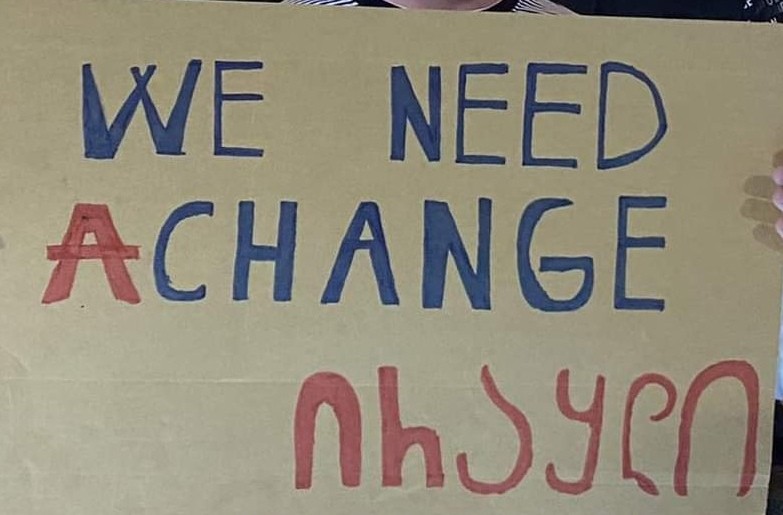 WE NEED
A CHANGE
ირაკლი